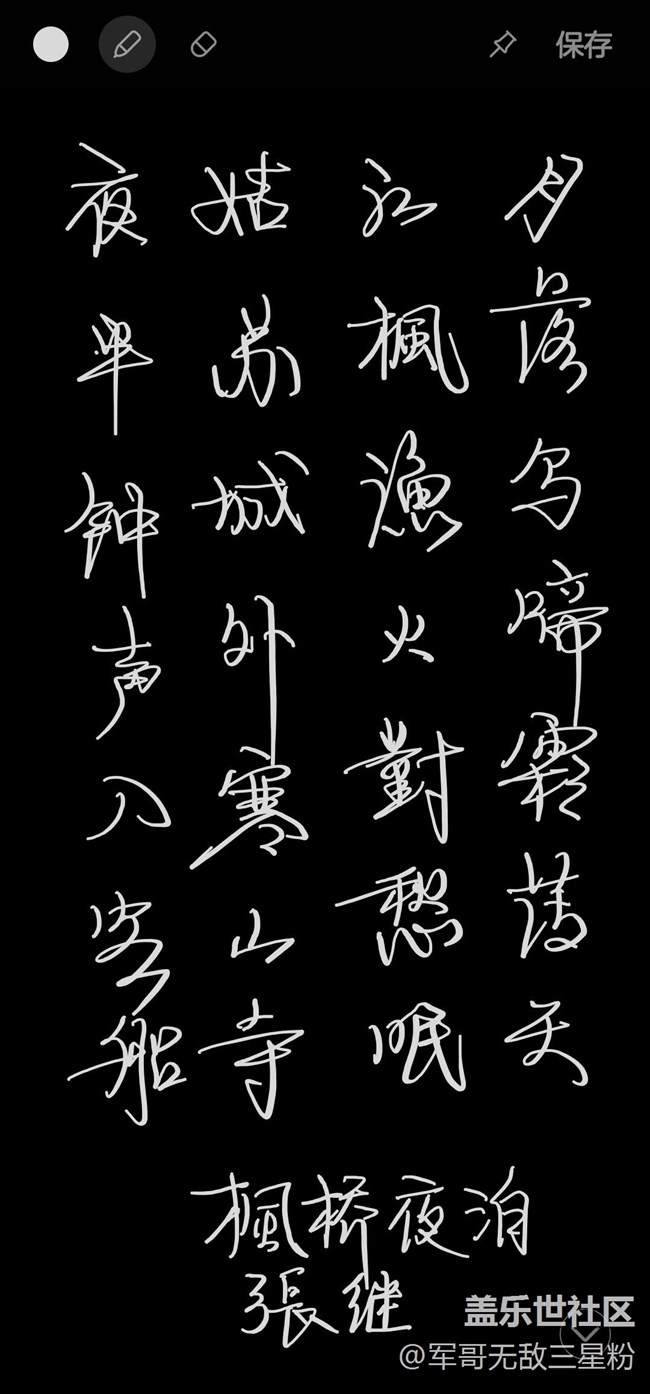 保存
月落乌啼霜满天
江楓漁火對愁眠
姑苏城外寒山寺
夜半钟声入客船
楓桥夜泊
張继
盖乐世社区
@军哥无敌三星粉